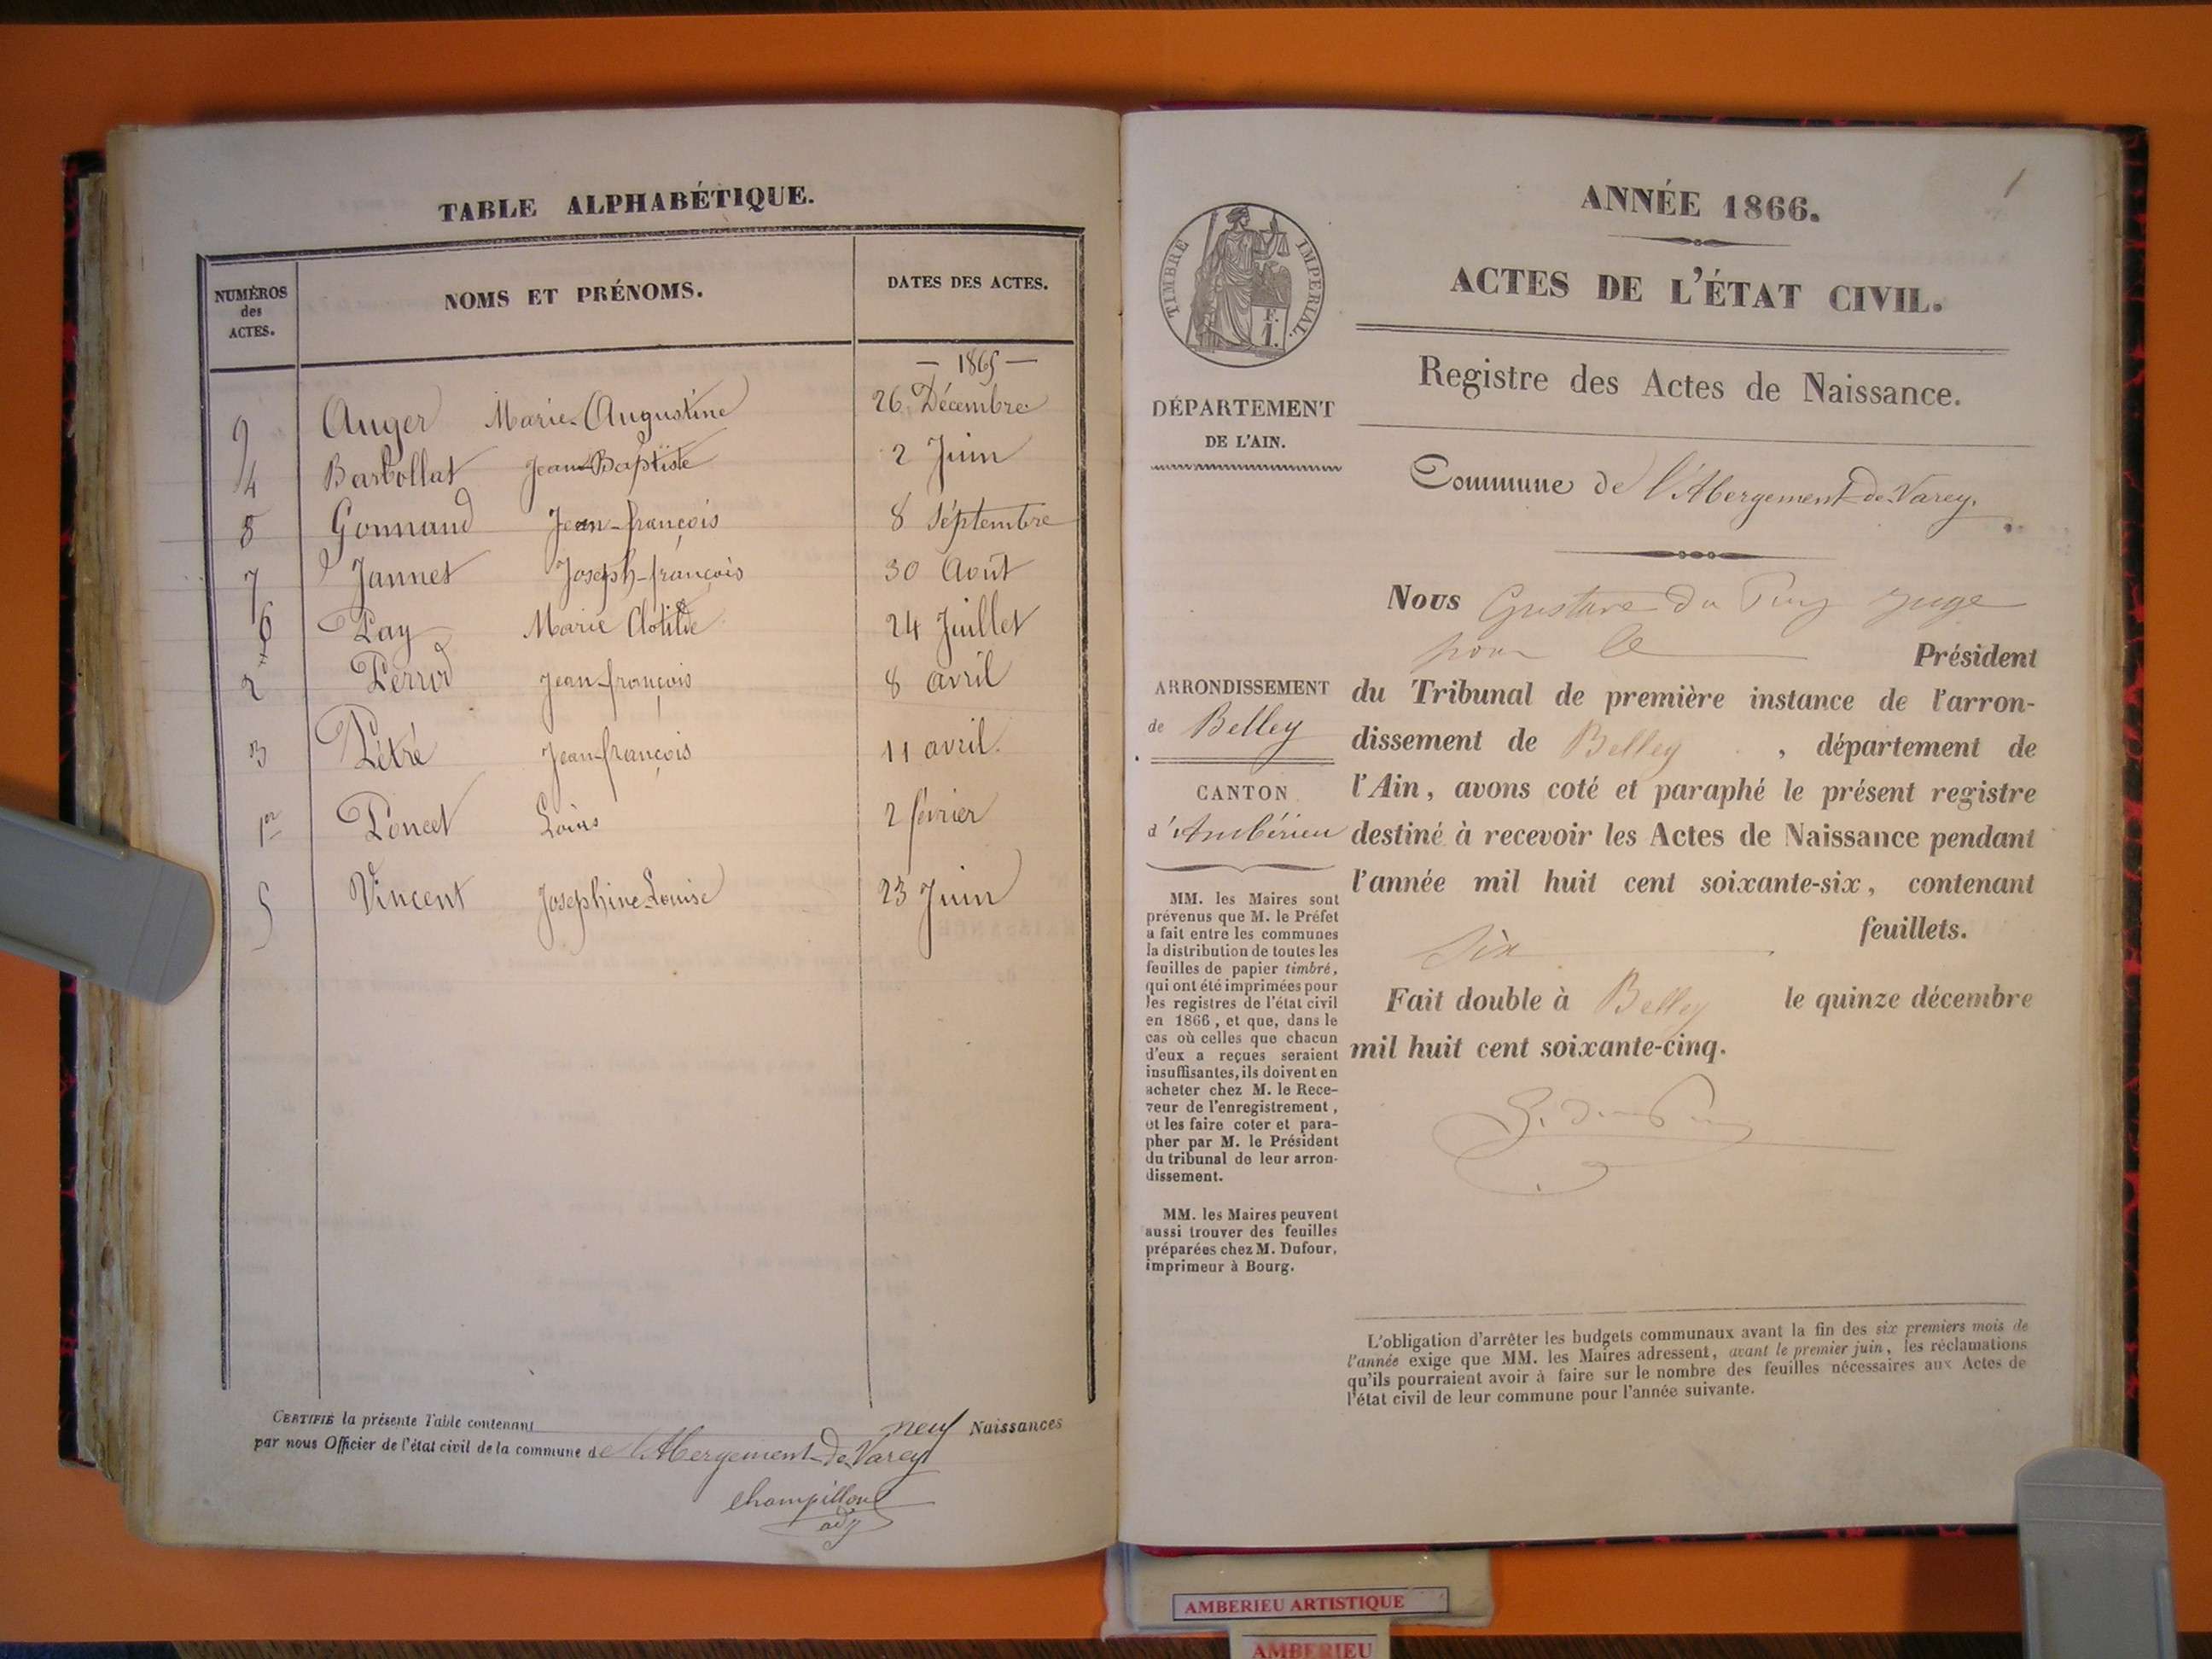 TABLE ALPHABÉTIQUE.
NUMÉROS
des
ACTES.
NOMS ET PRÉNOMS.
DATES DES ACTES.
— 1865 —
9 Auger Marie-Augustine 26 Décembre
4 Barbollat Jean-Baptiste 2 Juin
8 Gonnand Jean-françois 8 Septembre
7 Jannet Joseph-françois 30 Août
6 Pay Marie Clotilde 24 Juillet
2 Perrod Jean-françois 8 avril
3 Pétré Jean-françois 11 avril.
1er Poncet Loius 2 février
5 Vincent Josephine-Louise 23 Juin
CERTIFIÉ la présente Table contenant neuf Naissances
par nous Officier de l'état civil de la commune de l'Abergement-de-Varey
Champillon
adj
1
ANNÉE 1866.
ACTES DE L'ÉTAT CIVIL.
Registre des Actes de Naissance.
Commune de l'Abergement-de-Varey.
TIMBRE IMPÉRIAL.
F.
1.
DÉPARTEMENT
DE L'AIN.
ARRONDISSEMENT
de Belley
CANTON
d'Ambérieu
MM. les Maires sont
prévenus que M. le Préfet
a fait entre les communes
la distribution de toutes les
feuilles de papier timbré,
qui ont été imprimées pour
les registres de l'état civil
en 1866, et que, dans le
cas où celles que chacun
d'eux a reçues seraient
insuffisantes, ils doivent en
acheter chez M. le Rece-
veur de l'enregistrement,
et les faire coter et para-
pher par M. le Président
du tribunal de leur arron-
dissement.
MM. les Maires peuvent
aussi trouver des feuilles
préparées chez M. Dufour,
imprimeur à Bourg.
Nous Gustave du Puy juge
pour le Président
du Tribunal de première instance de l'arron-
dissement de Belley, département de
l'Ain, avons coté et paraphé le présent registre
destiné à recevoir les Actes de Naissance pendant
l'année mil huit cent soixante-six, contenant
six feuillets.
Fait double à Belley le quinze décembre
mil huit cent soixante-cinq.
G. du Puy
L'obligation d'arrêter les budgets communaux avant la fin des six premiers mois de
l'année exige que MM. les Maires adressent, avant le premier juin, les réclamations
qu'ils pourraient avoir à faire sur le nombre des feuilles nécessaires aux Actes de
l'état civil de leur commune pour l'année suivante.
AMBERIEU ARTISTIQUE
AMBERIEU